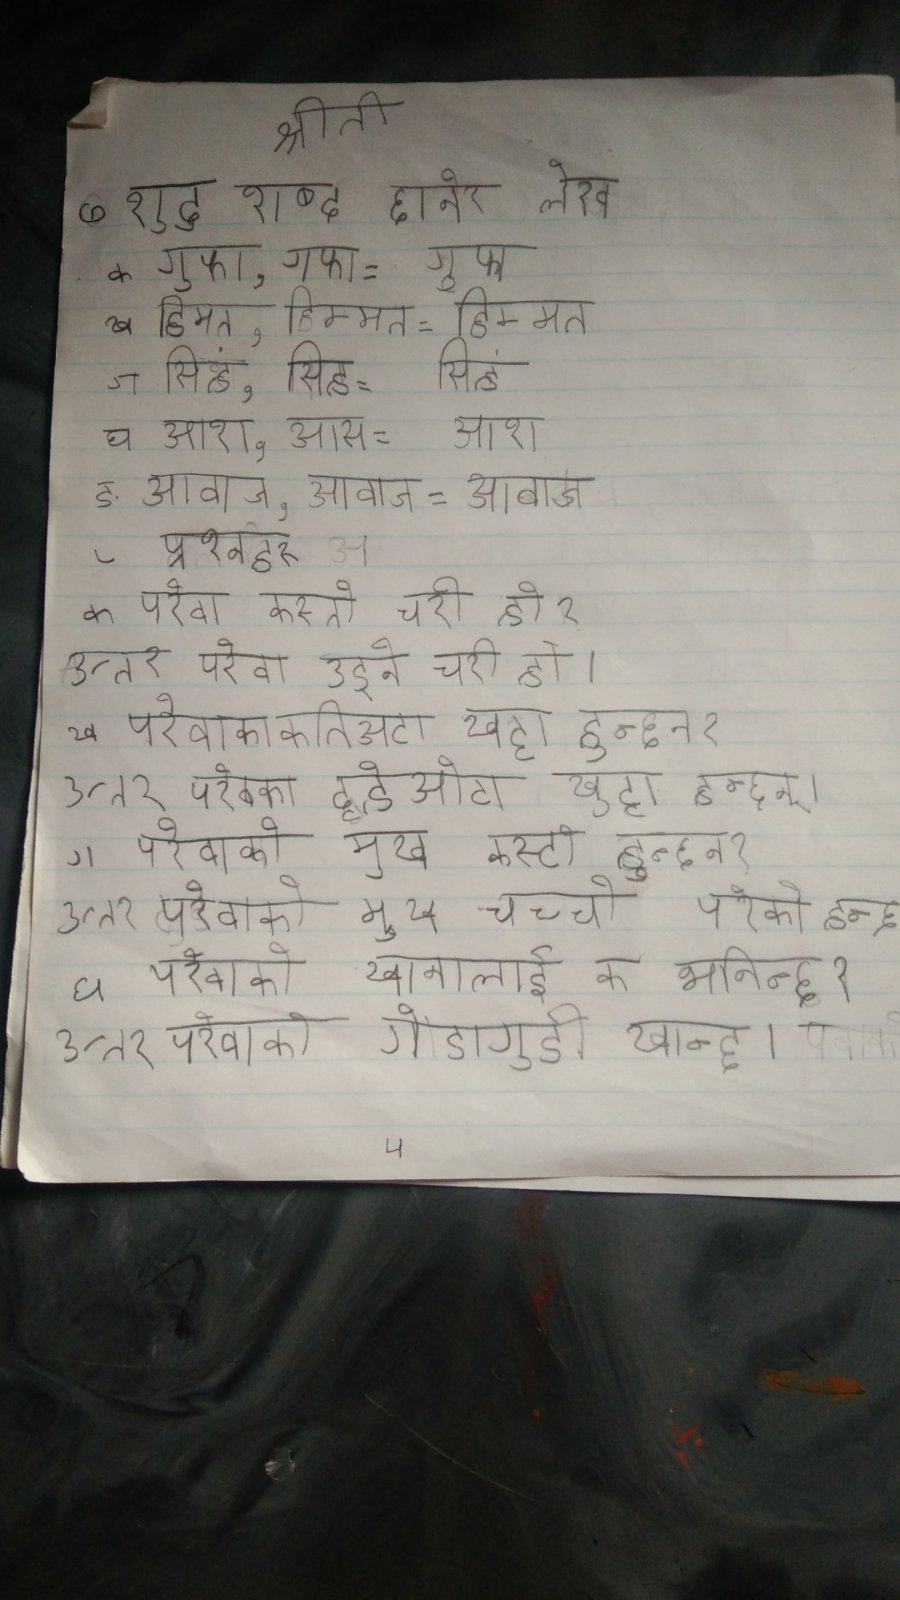 श्रीती
७ शुद्ध शब्द छानेर लेख
क गुफा, गफा= गुफा
ख हिमत, हिम्मत= हिम्मत
ग सिहं, सिह= सिहं
घ आशा, आस= आशा
ङ आवाज, आवाज= आबाज
८ प्रश्नहरू
क परेवा कस्तो चरी हो?
उत्तर परेवा उड्ने चरी हो।
ख परेवाकाकतिअटा खट्टा हुन्छन?
उत्तर परेबका दूईओटा खुट्टा हन्छन्।
ग परेवाको मुख कस्टो हुन्छन?
उत्तर परेवाको मुख चच्चो परेको हन्छ
घ परेवाको खानालाई क भनिन्छ?
उत्तर परेवाको गेडागुडी खान्छ।
५